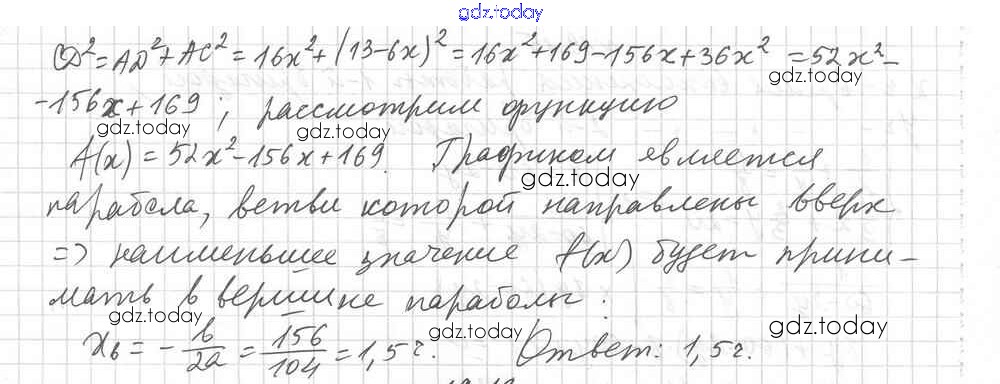 gdz.today
CD² = AD² + AC² = 16x² + (13-6x)² = 16x² + 169 - 156x + 36x² = 52x² -
gdz.today
- 156x + 169 ; рассмотрим функцию
gdz.today gdz.today
f(x) = 52x² - 156x + 169. Графиком является
gdz.today
парабола, ветви которой направлены вверх
=> наименьшее значение f(x) будет прини-
мать в вершине параболы:
gdz.today gdz.today gdz.today
xв = - b/2a = 156/104 = 1,5ч. Ответ: 1,5ч.